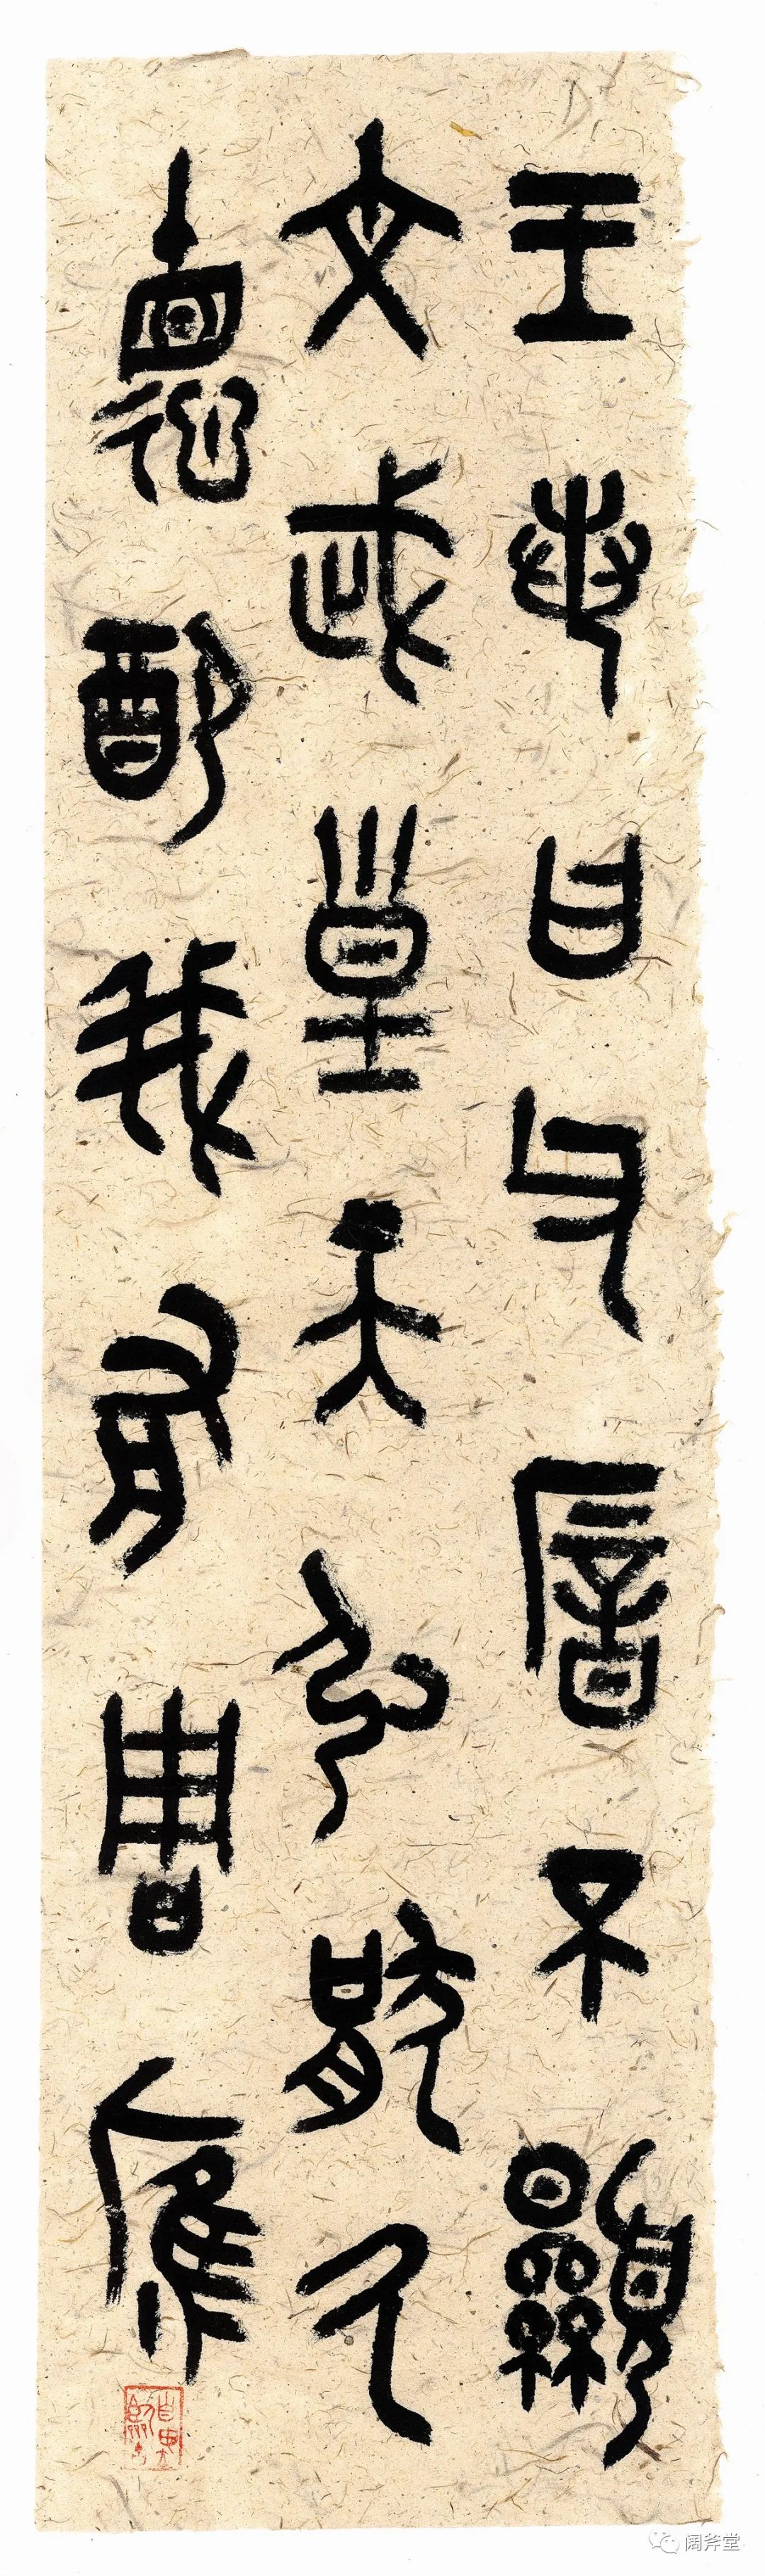 王若曰父㕂不顯
文武皇天弘猒氒
德配我有周膺
阔斧堂